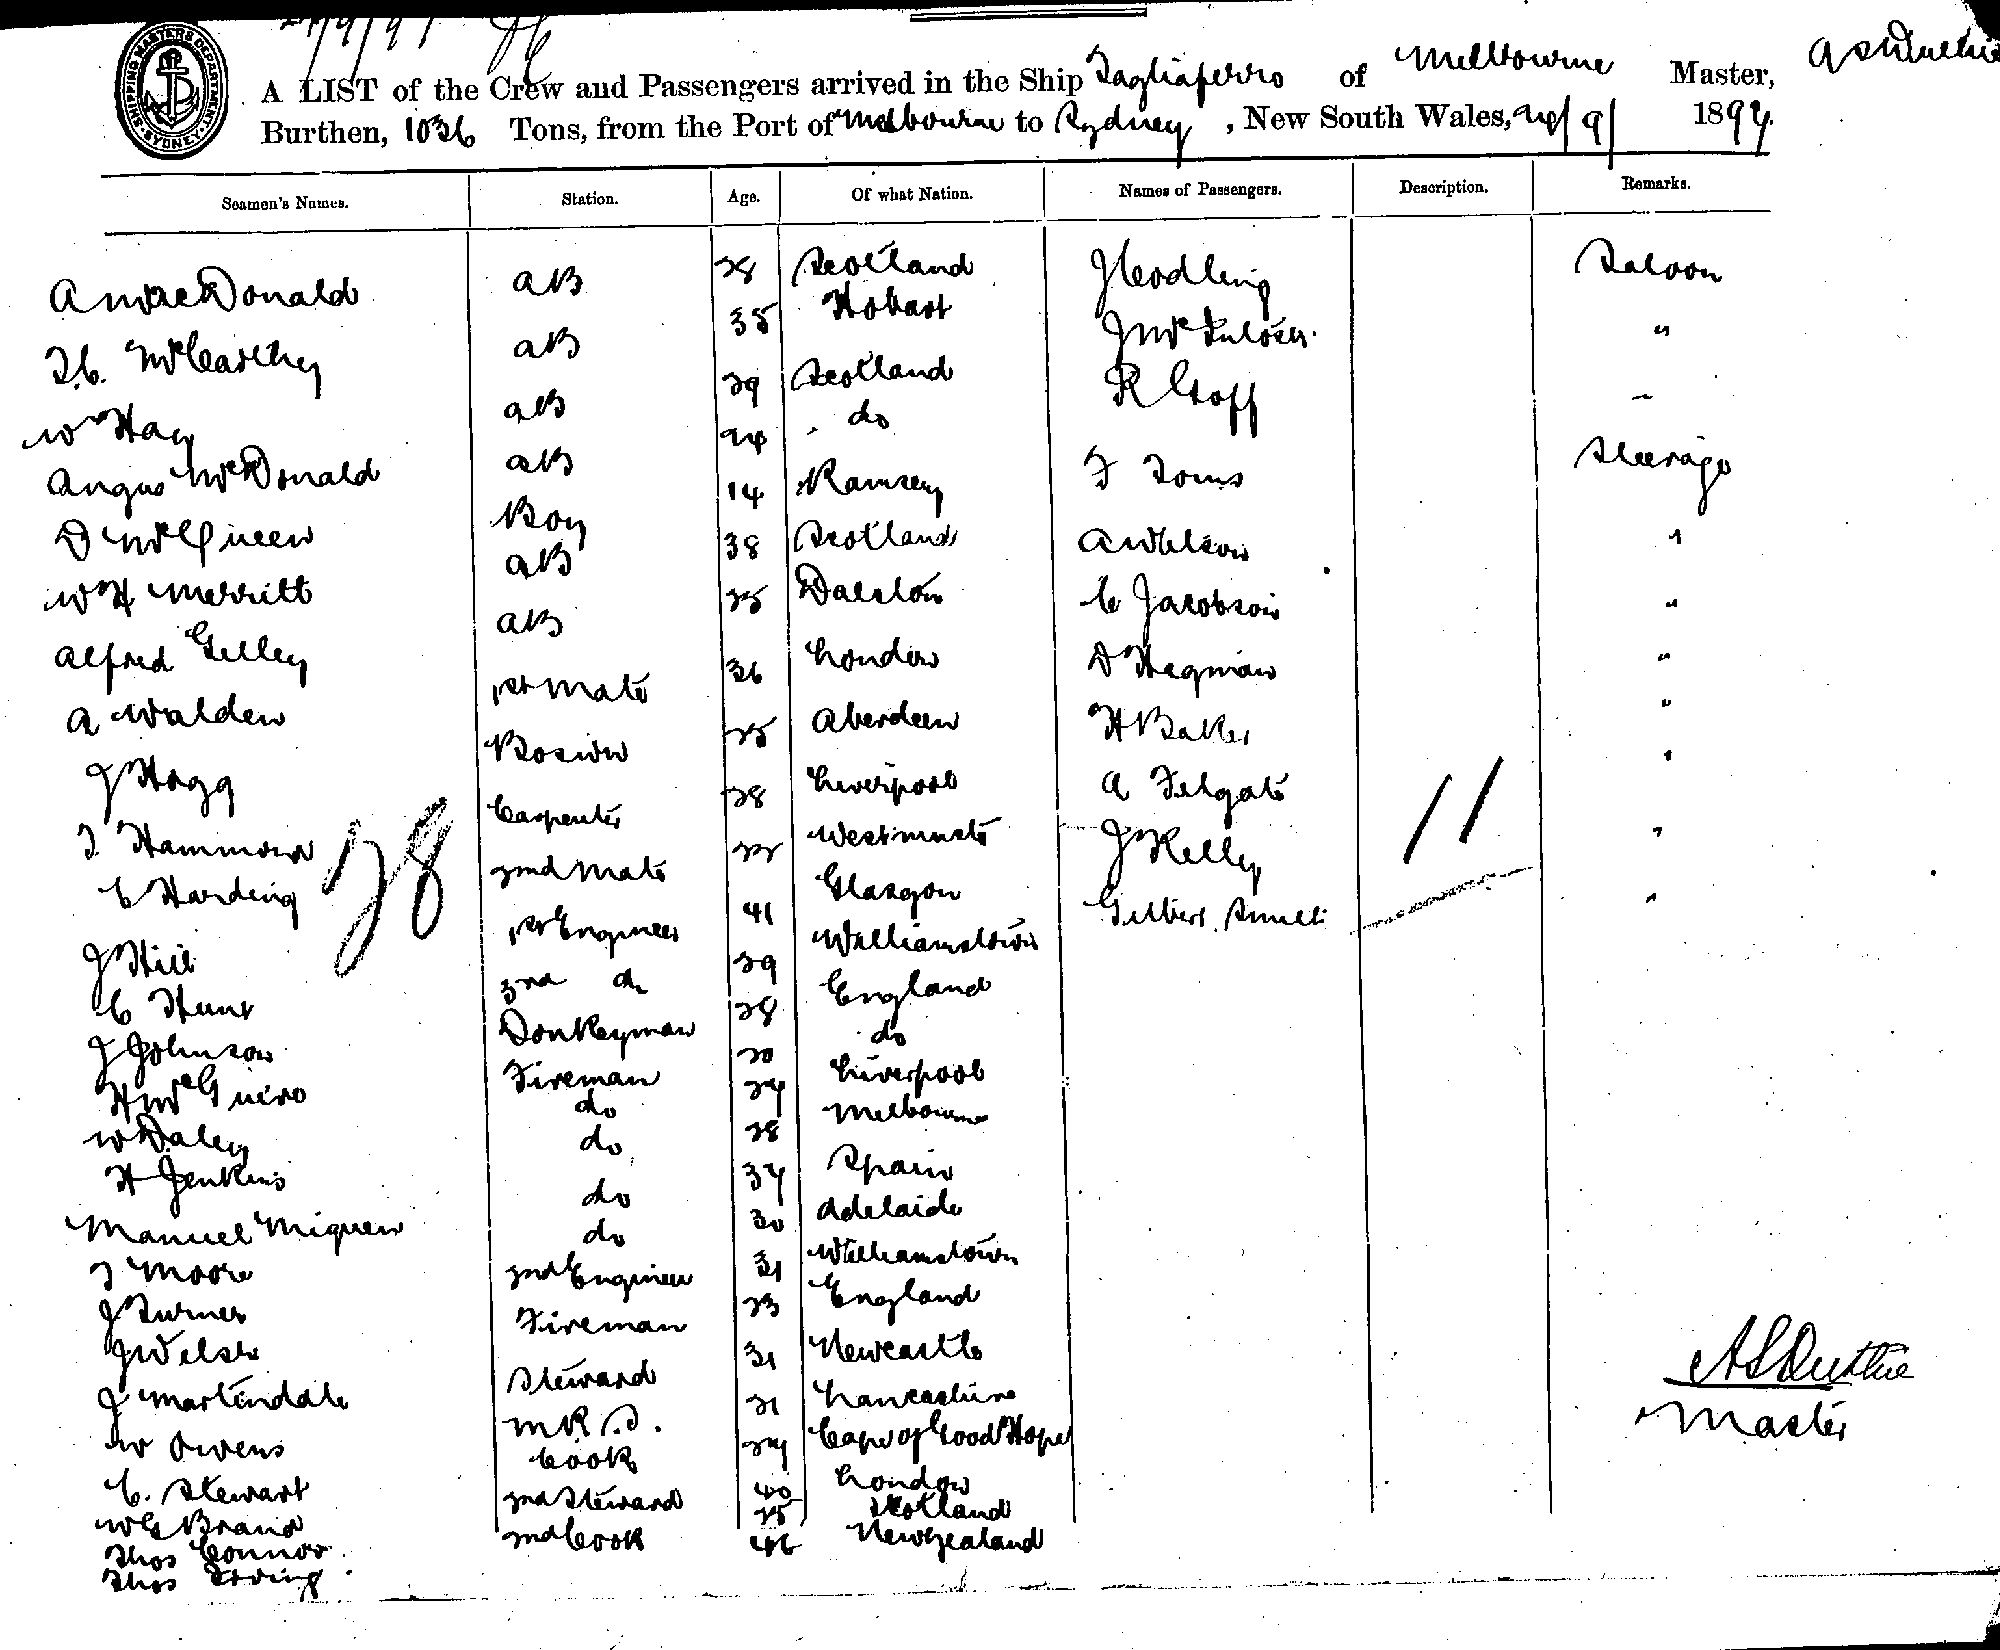 SHIPPING MASTERS DEPARTMENT SYDNEY
A LIST of the Crew and Passengers arrived in the Ship Tagliaferro of Melbourne Master, A S Duthie
Burthen, 1036 Tons, from the Port of Melbourne to Sydney, New South Wales, 1897.
Seamen's Names. Station. Age. Of what Nation. Names of Passengers. Description. Remarks.
A MacDonald AB 28 Scotland J Codling Saloon
T.C. McCarthy AB 35 Hobart J McIntosh "
W Hay AB 29 Scotland R Goff "
Angus McDonald AB 24 do F Toms Steerage
D McQueen Boy 14 Ramsey A Wilson "
W H Merritt AB 38 Scotland C Jacobson "
Alfred Gilley AB 25 Dalston D Hegman "
A Walden 1st Mate 36 London H Baker "
J Hogg Bosun 25 Aberdeen A Felgate "
T Hammond Carpenter 28 Liverpool J Kelly "
C Harding 2nd Mate 22 Westminster Gilbert "
J Hill 1st Engineer 41 Glasgow
C Hunt 3rd do 29 Williamstown
J Johnson Donkeyman 28 England
H Fireman 20 do
W Daley do 27 Liverpool
H Jenkins do 28 Melbourne
Manuel do 37 Spain
T Moore do 30 Adelaide
J Turner 2nd Engineer 31 Williamstown
J Fireman 23 England
J Martindale Steward 31 Newcastle
W Owens M R S. 21 Lancashire
C. Stewart Cook 27 Cape of Good Hope
W G Brand 2nd Steward 40 London
Thos Connor 2nd Cook 25 Scotland
Thos Irving 46 New Zealand
28
11
A S Duthie
Master